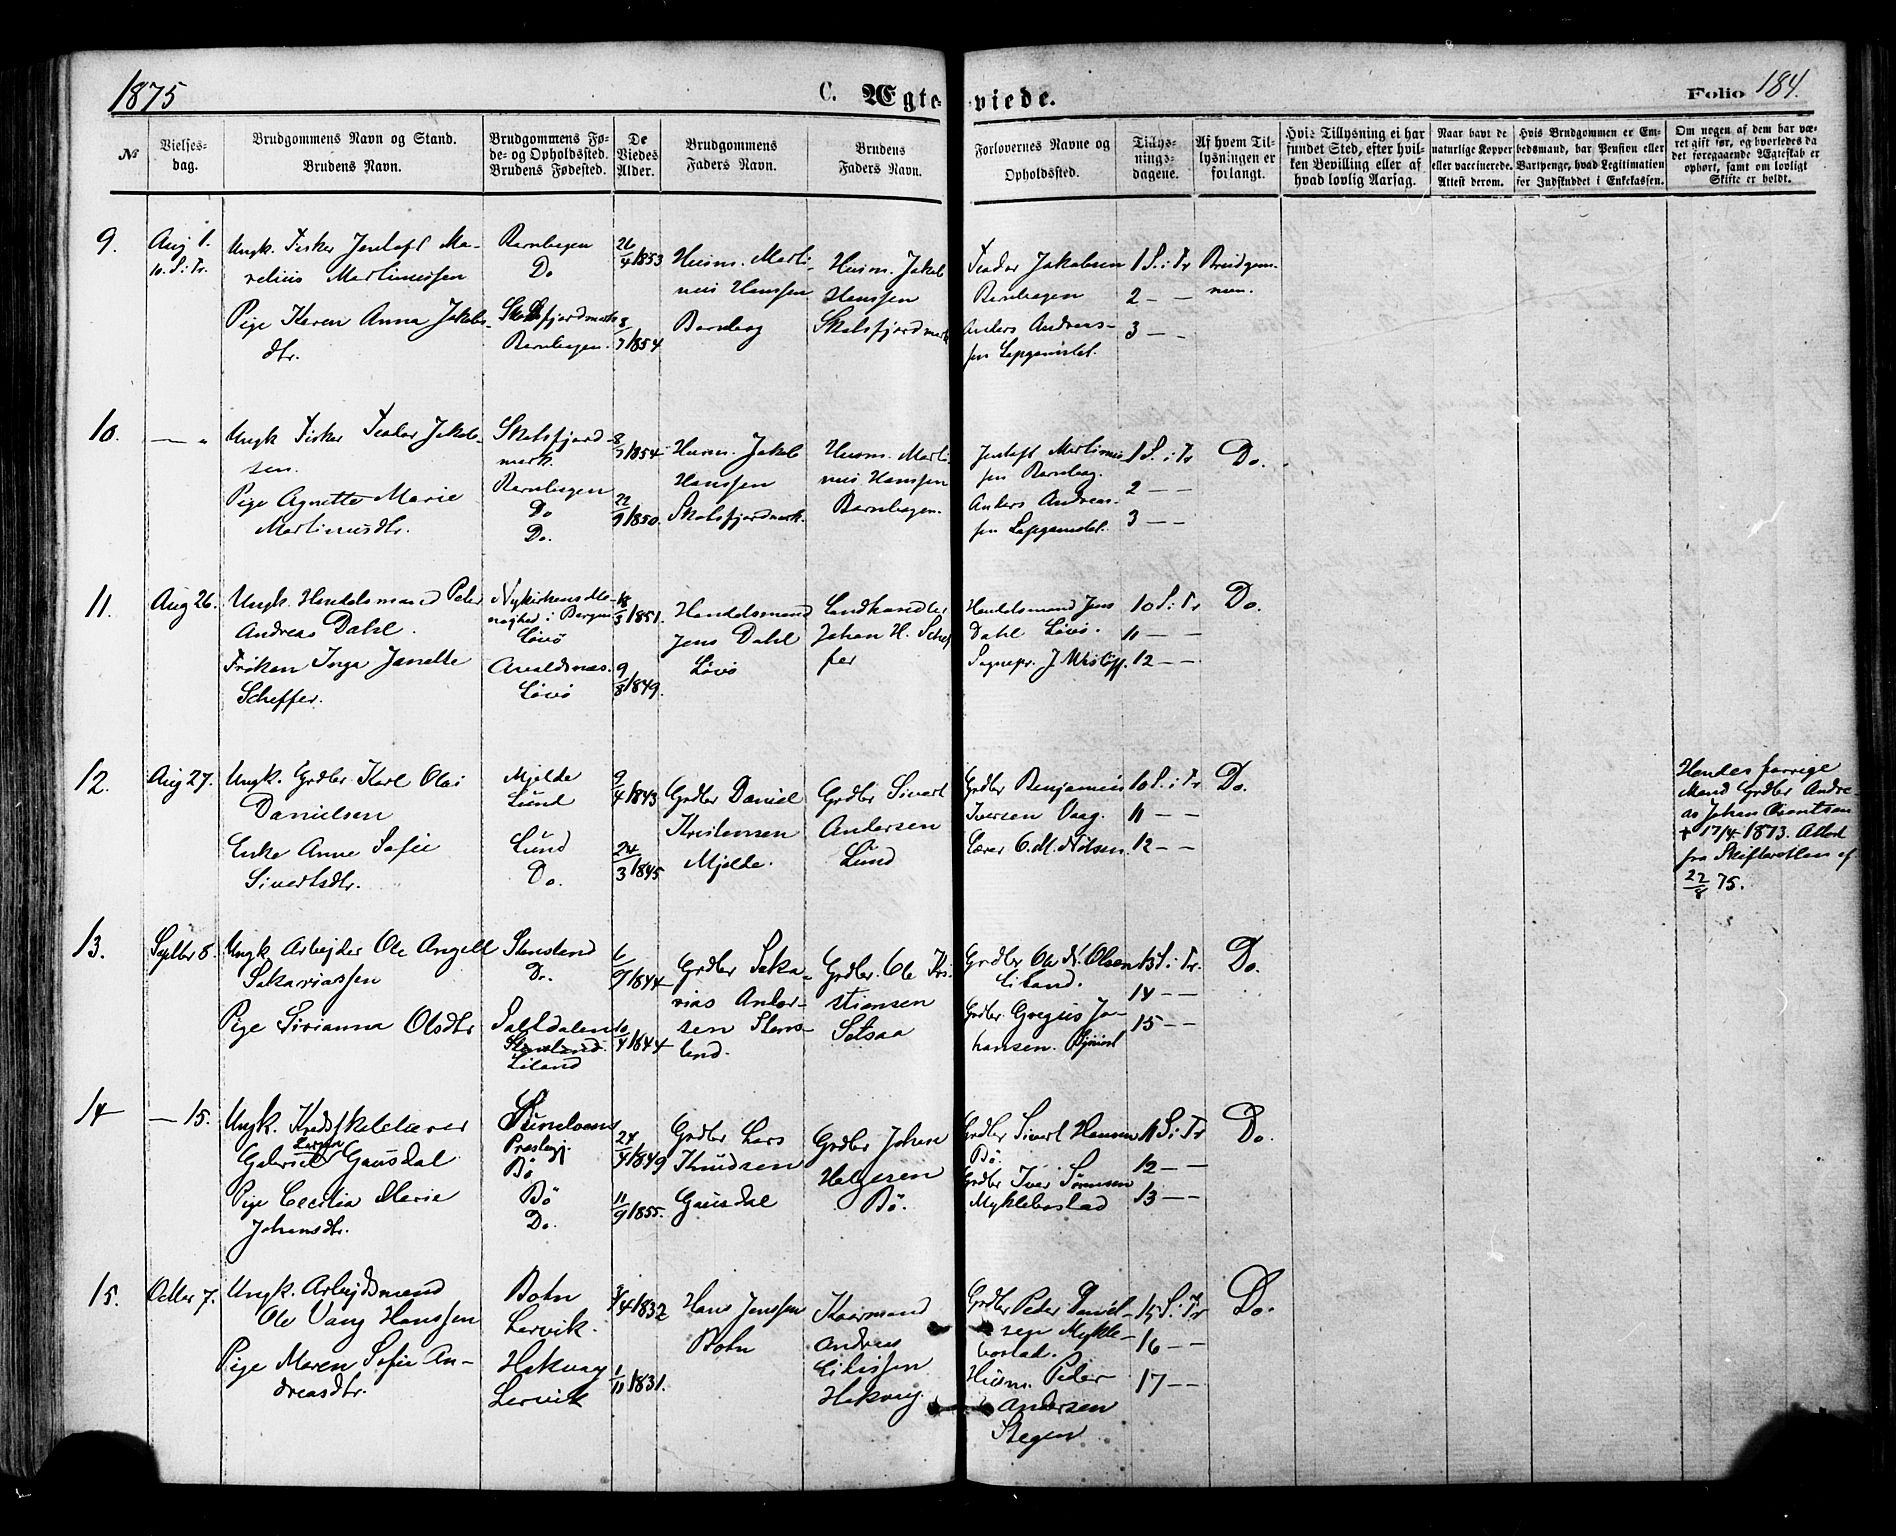 1875
C. Ægteviede.
Folio 184.
No
Vielses-
dag.
Brudgommens Navn og Stand.
Brudens Navn.
Brudgommens Fø-
de- og Opholdssted.
Brudens Fødested.
De
Viedes
Alder.
Brudgommens
Faders Navn.
Brudens
Faders Navn.
Forlovernes Navne og
Opholdssted.
Tillys-
nings-
dagene.
Af hvem Til-
lysningen er
forlangt.
Hvis Tillysning ei har
fundet Sted, efter hvil-
ken Bevilling eller af
hvad lovlig Aarsag.
Naar havt de
naturlige Kopper
eller vaccinerede.
Attest derom.
Hvis Brudgommen er Em-
bedsmand, har Pension eller
Vartpenge, hvad Legitimation
for Indskuddet i Enkekassen.
Om nogen af dem har væ-
ret gift før, og hvorledes da
det foregaaende Ægteskab er
ophørt, samt om lovligt
Skifte er holdt.
9.
Aug 1.
10. S. i Tr.
Ungk. Fisker Jentoft Ma-
relius Martinussen
Pige Karen Anna Jakobs-
dtr.
Do
26/4 1853
8/7 1854
Husm. Marti-
nus Hanssen
Husm. Jakob
Hanssen
Skotsfjordmark
Teodor Jakobsen
Anders Andreas-
sen
1 S. i Tr
2 — —
3 — —
Brudgom-
men.
10.
— "
Ungk Fisker Teodor Jakob-
sen.
Pige Agnette Marie
Martinusdtr.
Skotsfjord-
mark.
Do
Do.
8/7 1854
22/9 1850.
Husm. Jakob
Hanssen
Skotsfjordmark.
Husm. Marti-
nus Hanssen
Jentoft Martinus-
sen
Anders Andreas-
sen
1 S. i Tr
2 — —
3 — —
Do.
11.
Aug 26.
Ungk. Handelsmand Peter
Andreas Dahl.
Frøken Inga Janette
Scheffer.
Nykirkens Me-
nighed i Bergen
Løvø
Avaldsnes.
Løvø
18/3 1851.
9/8 1849.
Handelsmand
Jens Dahl
Løvø
Landhandler
Johan H. Schef-
fer
Handelsmand Jens
Dahl Løvø.
Sognepr. J Wisløff.
10 S. i Tr
11 — —
12 — —
Do.
12.
Aug 27.
Ungk. Grdbr. Karl Olai
Danielsen
Enke Anne Sofie
Sivertsdtr.
Mjelde
Lund
Lund
Do.
9/4 1843
24/3 1845
Grdbr Daniel
Kristensen
Mjelde.
Grdbr Sivert
Andersen
Lund
Grdbr Benjamin
Iversen Vaag.
Lærer C. M. Nilsen.
10 S. i Tr
11 — —
12 — —
Do.
Hendes forrige
Mand Grdbr Andre-
as Johan
† 17/4 1873. Attest
fra Skifteretten af
22/8 75.
13.
Septbr 8.
Ungk. Arbejder Ole Angell
Sakariassen
Pige Sirianna Olsdtr
Stensland
Do.
Saltdalen
Stensland
Liland
6/9 1844
10/4 1844
Grdbr Saka-
rias Ander-
sen Stens-
land.
Grdbr. Ole Kri-
stiansen
Setsaa
Grdbr Ole N. Olsen
Liland.
Grdbr. Gregus Jo-
hansen.
13 S. i Tr.
14 — —
15 — —
Do.
14
— 15.
Ungk. Kredsskolelærer
Larsen
Gabriel Gausdal
Pige Cecilia Marie
Johansdtr.
Præstegj.
Bø
Bø
Do.
24/4 1849
11/9 1855.
Grdbr Lars
Knudsen
Gausdal
Grdbr Johan
Helgesen
Bø.
Grdbr Sivert Hansen
Bø.
Grdbr Iver Sørensen
Myklebostad
11 S. i Tr
12 — —
13 — —
Do.
15.
Octbr 7.
Ungk. Arbejdsmand
Ole Vang Hanssen
Pige Maren Sofie An-
dreasdtr.
Botn
Lervik.
Hakvaag
Lervik
4 1832
1/11 1831.
Hans Jenssen
Botn
Kaarmand
Andreas
Eilissen
Hakvag.
Grdbr Peder Daniel-
sen Mykle-
bostad.
Husm. Peder
Andersen
Skegen
15 S. i Tr
16 — —
17 — —
Do.